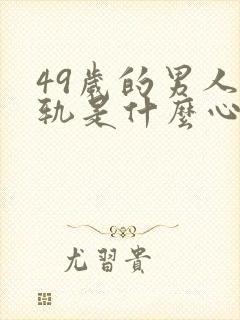 49歲的男人
軌是什麼心
尤習貴